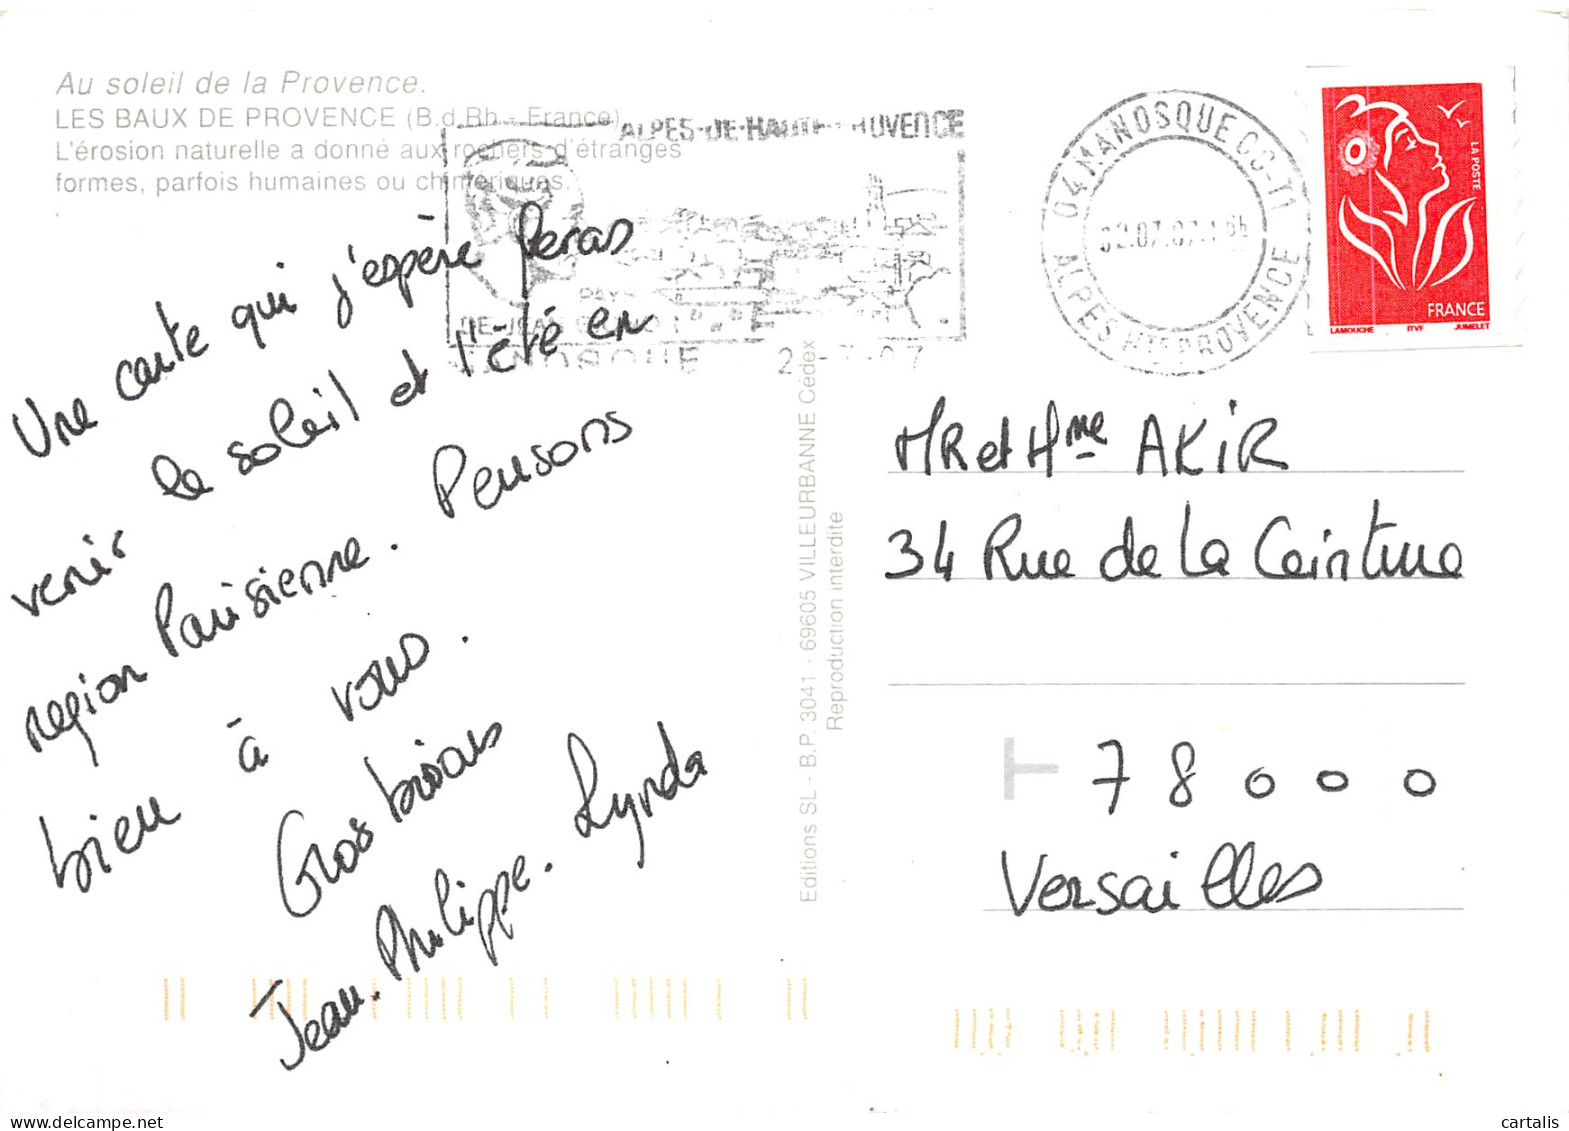 Au soleil de la Provence.
LES BAUX DE PROVENCE (B.d.Rh - France)
L'érosion naturelle a donné aux rochers d'étranges
formes, parfois humaines ou chimériques.
Une carte qui j'espère feras
venir le soleil et l'été en
region Parisienne. Pensons
bien à vous.
Gros bisous
Jean-Philippe. Lynda
Editions SL - B.P. 3041 - 69605 VILLEURBANNE Cédex
Reproduction interdite
ALPES-DE-HAUTE-PROVENCE
PAYS
DE JEAN
MANOSQUE
04 MANOSQUE CC-T1
ALPES Hte PROVENCE
LA POSTE
FRANCE
LAMOUCHE ITVF JUMELET
MR et Mme AKIR
34 Rue de la Ceinture
78000
Versailles
cartalis